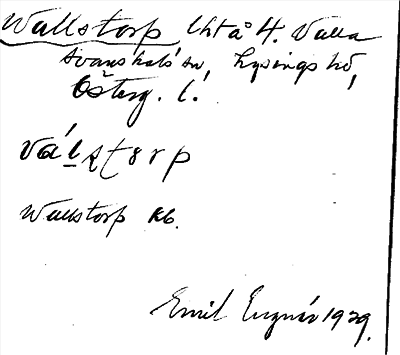 Wallstorp lht å H. Valla
Svanshals sn, Lysings hd,
Österg. l.
válstorp
Wallstorp kb.
Emil 1929.